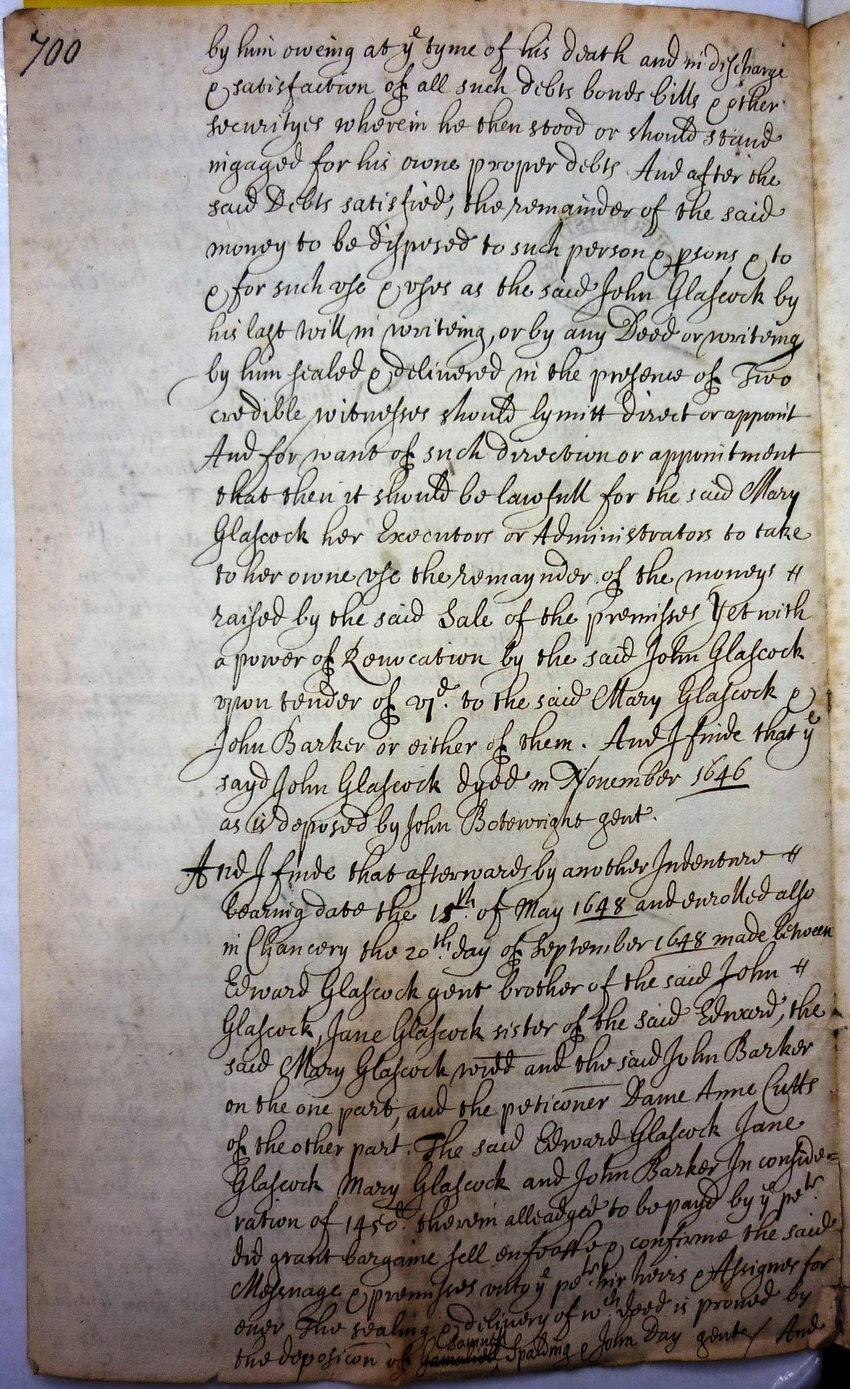 700
by him oweing at ye tyme of his death and in discharge
& satisfaction of all such debts bonds bills & other
securityes wherein he then stood or should stand
ingaged for his owne proper debts And after the
said Debts satisfied, the remainder of the said
money to be disposed to such person & psons & to
& for such vse & vses as the said John Glascock by
his last will in writeing, or by any Deed or writeing
by him sealed & delivered in the presence of Two
credible witnesses should lymitt direct or appoint
And for want of such direction or appointment
that then it should be lawfull for the said Mary
Glascock her Executors or Administrators to take
to her owne vse the remaynder of the moneys
raised by the said Sale of the premisses Yet with
a power of Revocation by the said John Glascock
vpon tender of vjd. to the said Mary Glascock &
John Barker or either of them. And I finde that ye
sayd John Glascock dyed in November 1646
as is deposed by John Botewright gent.
And I finde that afterwards by another Indenture
bearing date the 15th. of May 1648 and enrolled also
in Chancery the 20th. day of September 1648 made between
Edward Glascock gent brother of the said John
Glascock, Jane Glascock sister of the said Edward, the
said Mary Glascock widd and the said John Barker
on the one part, and the peticoner Dame Anne Cutts
of the other part. The said Edward Glascock Jane
Glascock Mary Glascock and John Barker In conside=
ration of 1450l. therein alleadged to be payd by ye petr.
did grant bargaine sell enfeoffe & confirme the said
Messuage & premisses vnto ye petr. hir heirs & Assignes for
euer The sealing & delivery of wch. deed is proued by
the deposicon of Samuel Spalding & John Day gent / And